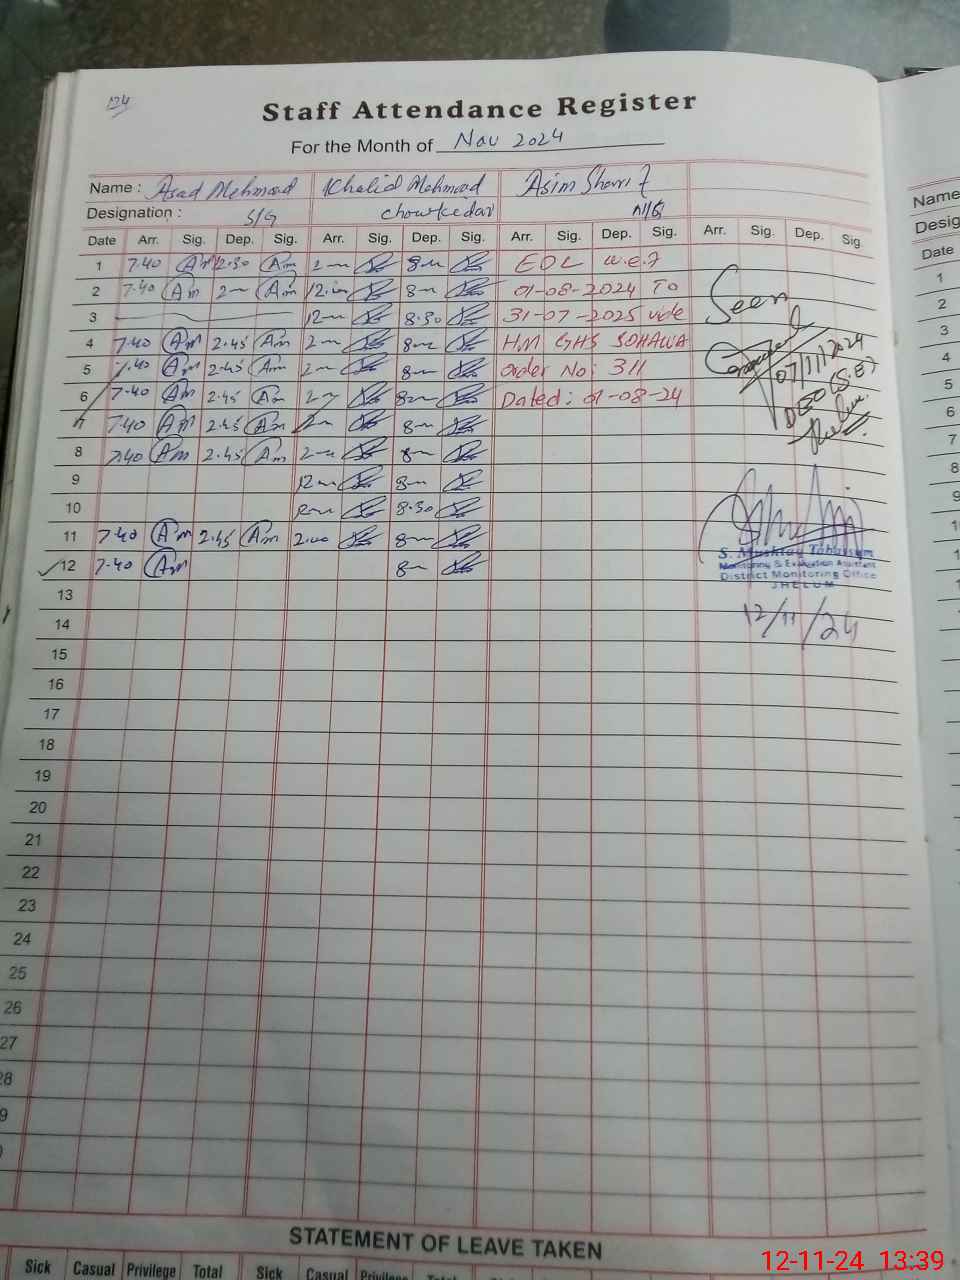 124
Staff Attendance Register
For the Month of Nov 2024
Name : Asad Mehmood Khalid Mehmood Asim Sharif
Designation : S/G chowkedar N/Q
Date Arr. Sig. Dep. Sig. Arr. Sig. Dep. Sig. Arr. Sig. Dep. Sig. Arr. Sig. Dep. Sig.
1 7.40 Am 12.30 Am EOL w.e.f
2 7.40 Am Am 01-08-2024 To
3 8.30 31-07-2025 vide
4 7.40 Am 2.45 Am HM GHS SOHAWA
5 7.40 Am 2.45 Am Order No: 311
6 7.40 Am 2.45 Am Dated: 01-08-24
7 7.40 Am 2.45 Am
8 7.40 Am 2.45 Am
9
10 8.30
11 7.40 Am 2.45 Am 2.00
12 7.40 Am
13
14
15
16
17
18
19
20
21
22
23
24
25
26
27
28
9
Seen
07/11/2024
DEO (S.E)
Jhelum.
S. Mushtaq Tabassum
Monitoring & Evaluation Assistant
District Monitoring Office
JHELUM
12/11/24
STATEMENT OF LEAVE TAKEN
Sick Casual Privilege Total Sick Casual Privilege Total
Name
Desig
Date
1
2
3
4
5
6
7
8
9
10
11
12-11-24 13:39